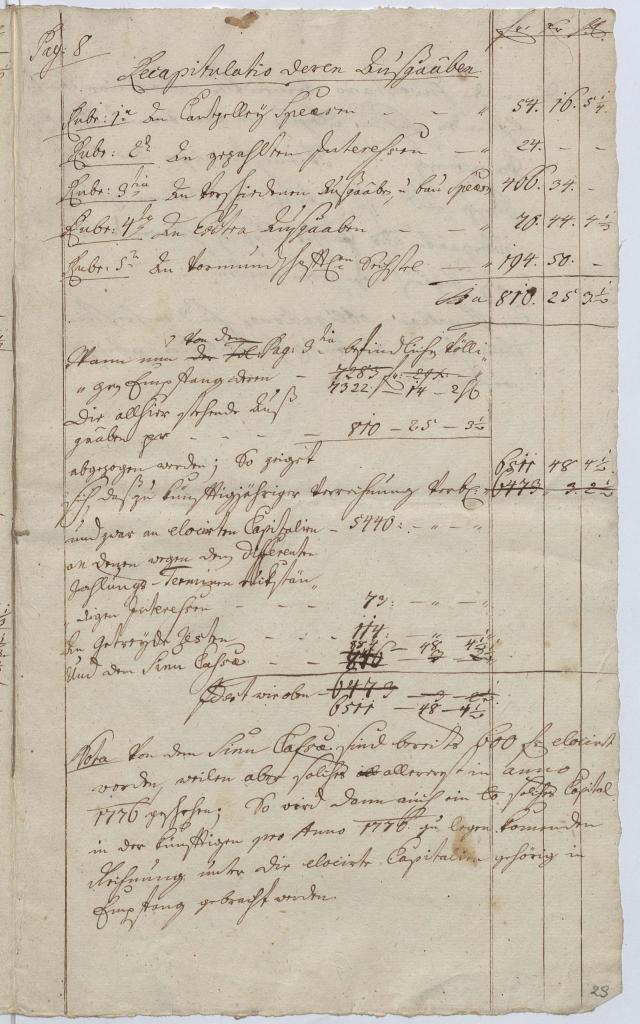 Pag: 8
fr xr dl
Recapitulatio deren Ausgaaben
Rubr: 1a An Cantzelley Speesen - - " 54. 16. 5 1/4
Rubr: 2da An gezahlten Interessen - " 24. - -
Rubr: 3tia An Verschiedenen Ausgaaben, u bau Speesen 466. 34. -
Rubr: 4ta An Extra Ausgaaben - - " 70. 44. 4 1/2
Rubr: 5ta An Vormundschafftl. Sechstl - " 194. 50. -
Sa 810. 25 3 1/2
Wann nun von dem Pag: 3tia befindliche völli
gen Empfang deren - 7283
7322 - 14 - 2
Die allhier stehende Auß
gaaben pr - - - - 810 - 25 - 3 1/2
abgezogen werden; So zeiget 6511 48 4 1/2
sich, daß zu künfftigjähriger Verrechnung verbl: 6473 3. 2 1/2
und zwar an elocirten Capitalien - 5440: - " - "
an denen wegen dem differenten
Zahlungs-Terminen ruckstän
digen Interessen - - - 73: - " - "
An Getreyde resten - - - 114: - " - "
Und dem Sinn Cassa - - 48 4 1/2
Fdert wie oben - 6473
6511 - 48 - 4 1/2
Nota Von dem Sinn Cassa sind bereits 600 fr elocirt
worden, weilen aber solches allererst in anno
1776 geschehen; So wird dann auch ein solches Capital
in der künfftigen pro Anno 1776 zu legen komenden
Reichnung unter die elocirte Capitalien gehörig in
Empfang gebracht werden.
23